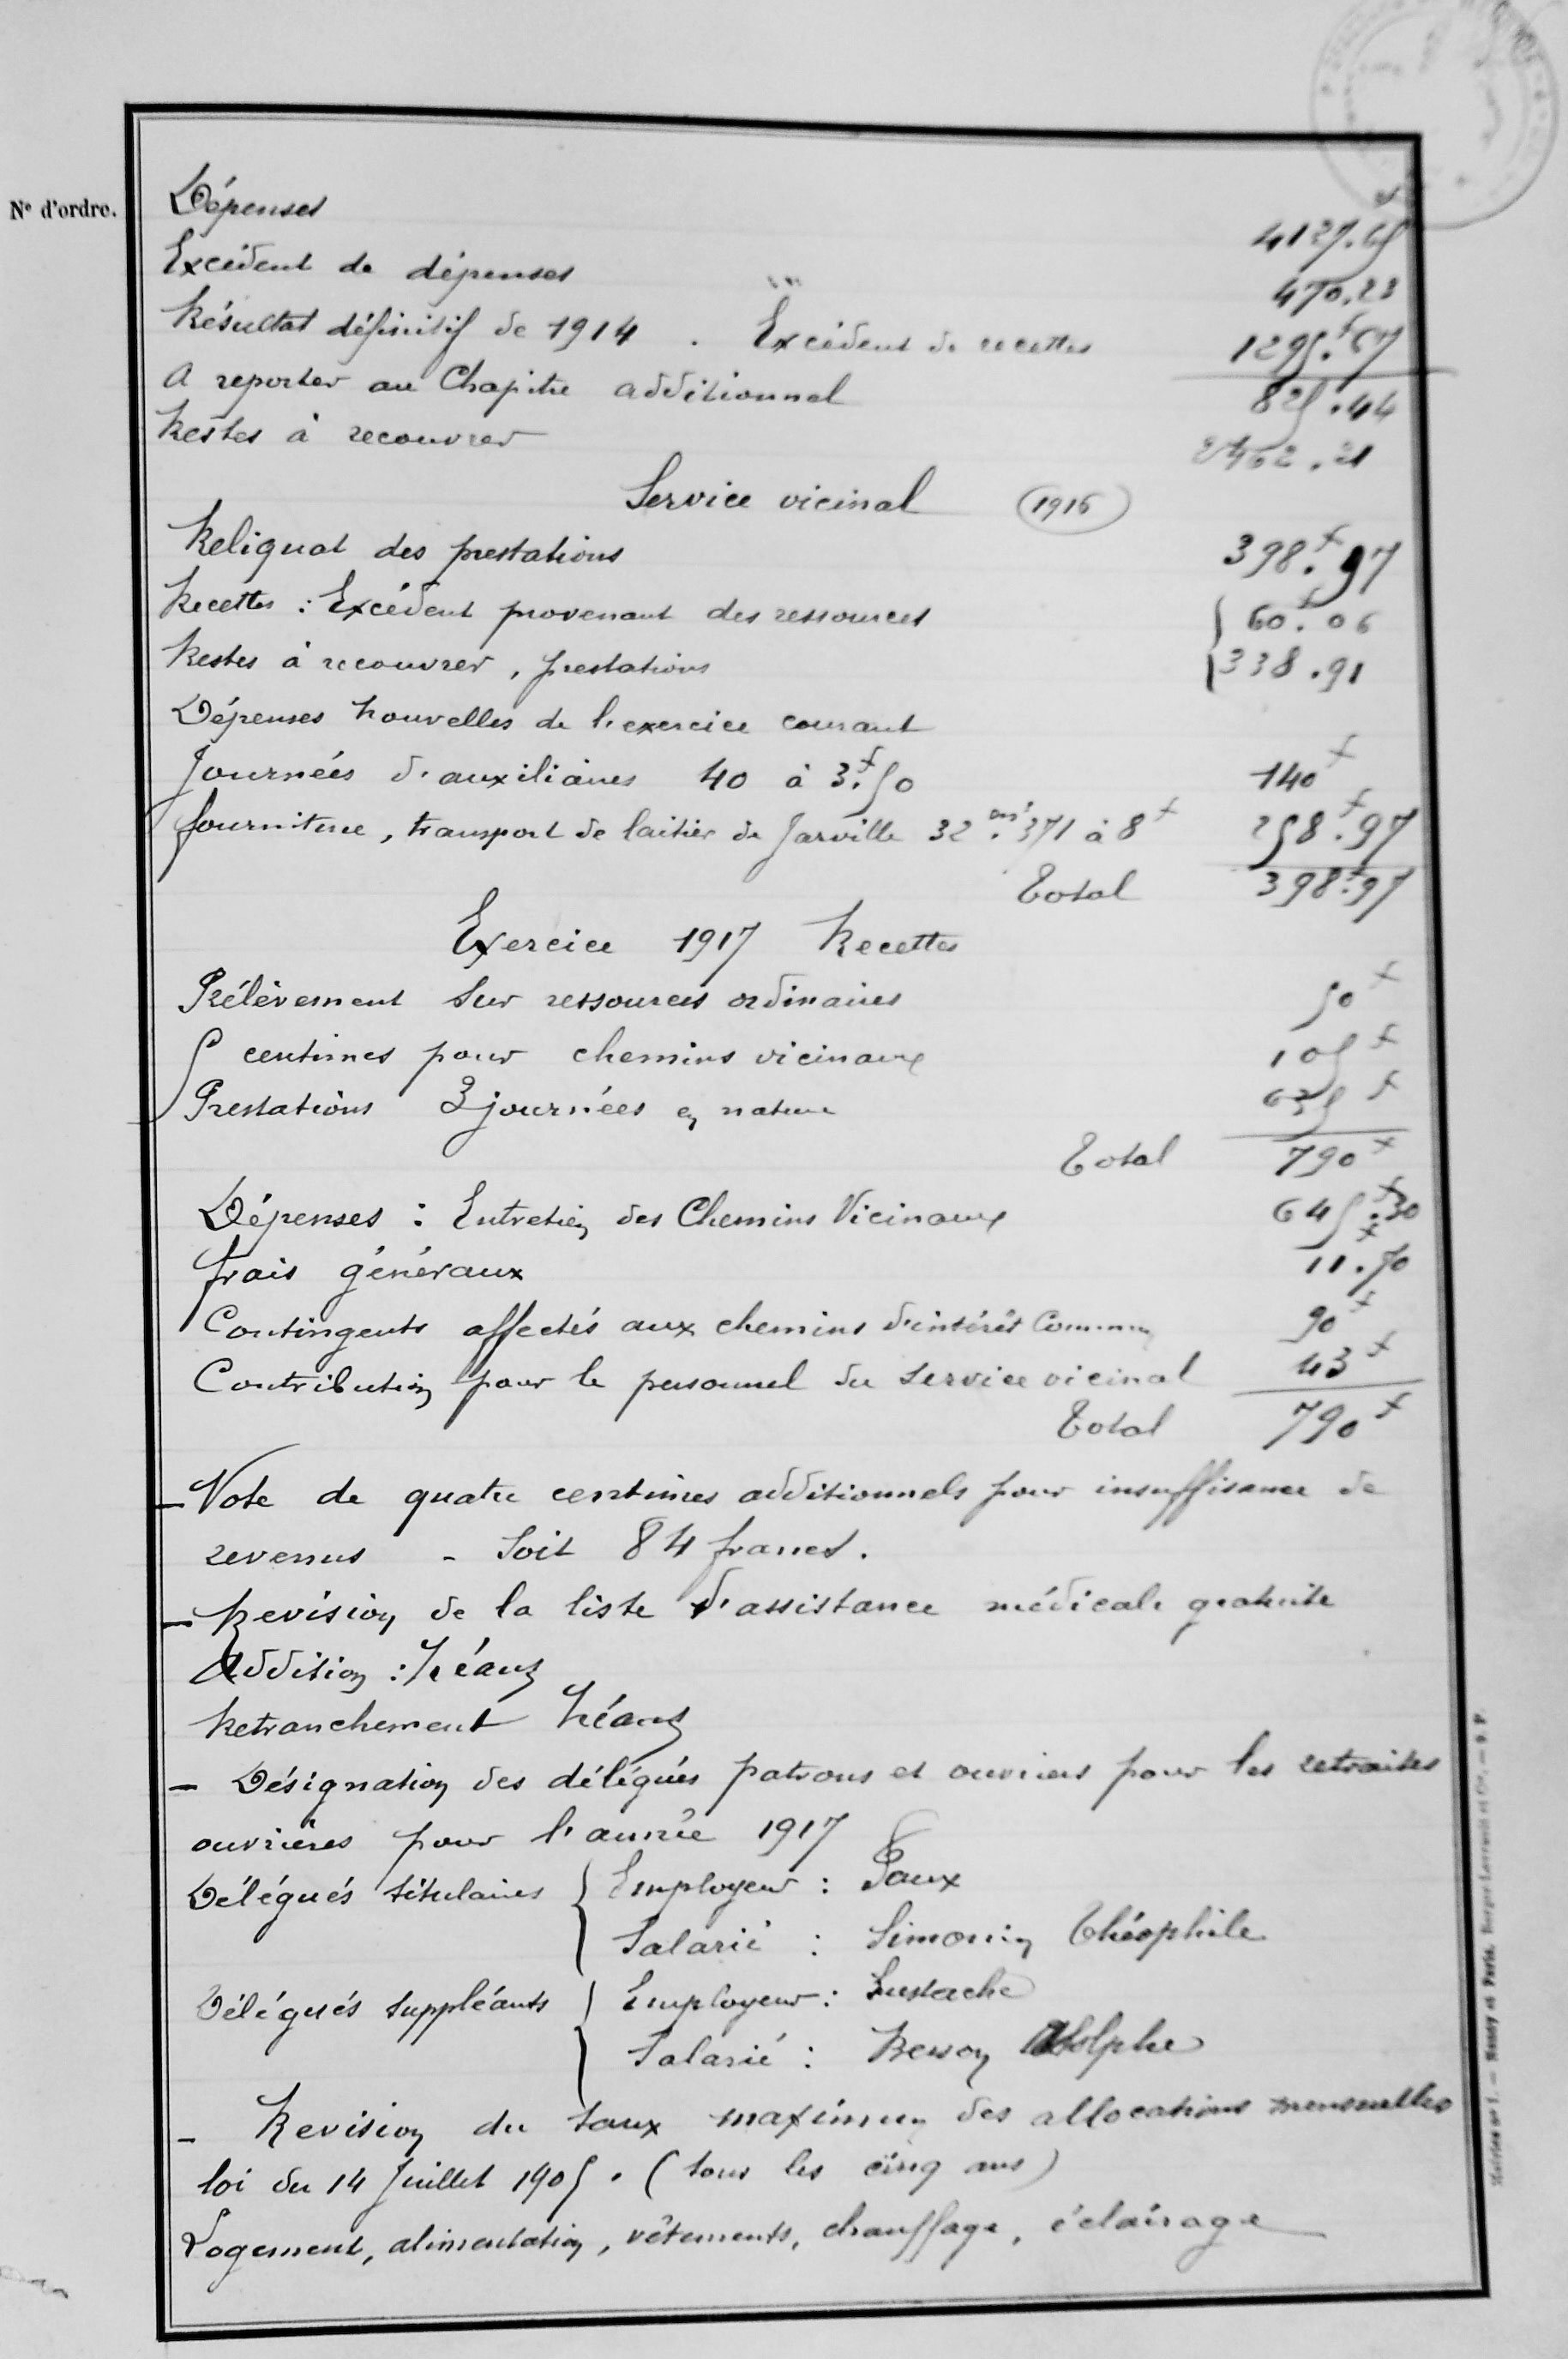 N° d'ordre.
Dépenses 4127.65
Excédent de dépenses 470.23
Résultat définitif de 1914. Excédent de recettes 1295f.67
A reporter au Chapitre additionnel 825.44
Restes à recouvrer 2462.21
Service vicinal 1916
Reliquat des prestations 398f.97
Recettes : Excédent provenant des ressources 60f.06
Restes à recouvrer, prestations 338.91
Dépenses nouvelles de l'exercice courant
Journées d'auxiliaires 40 à 3f.50 140f
fourniture, transport de laitier de Jarville 32m3.371 à 8f 258f.97
Total 398f.97
Exercice 1917 Recettes
Prélèvement sur ressources ordinaires 50f
5 centimes pour chemins vicinaux 105f
Prestations 3 journées en nature 635f
Total 790f
Dépenses : Entretien des Chemins Vicinaux 645f.30
frais généraux 11f.70
Contingents affectés aux chemins d'intérêt Commun 90f
Contribution pour le personnel du service vicinal 43f
Total 790f
- Vote de quatre centimes additionnels pour insuffisance de
revenus - Soit 84 francs.
- Revision de la liste d'assistance médicale gratuite
Addition : Néant
Retranchement Néant
- Désignation des délégués patrons et ouvriers pour les retraites
ouvrières pour l'année 1917
Délégués titulaires Employeur : Paux
Salarié : Simonin Théophile
Délégués suppléants Employeur : Eustache
Salarié : Adolphe
- Revision du taux maximum des allocations mensuelles
loi du 14 Juillet 1905. (tous les cinq ans)
Logement, alimentation, vêtements, chauffage, éclairage